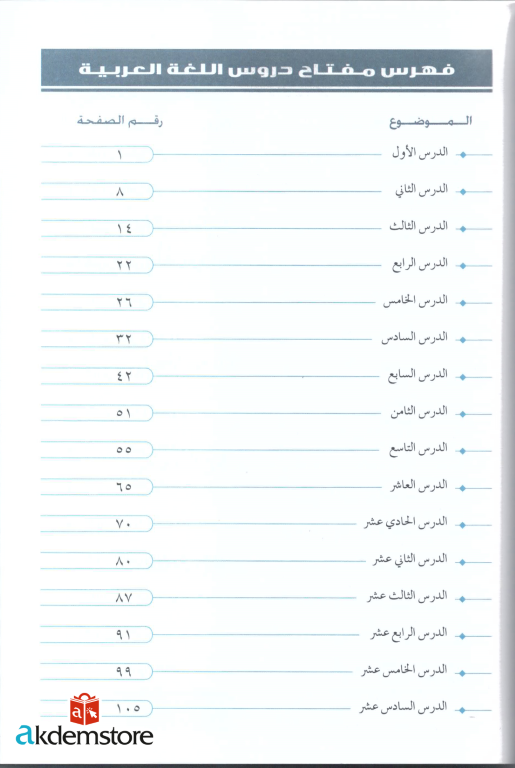 فهرس مفتاح دروس اللغة العربية
الموضوع رقم الصفحة
الدرس الأول ١
الدرس الثاني ٨
الدرس الثالث ١٤
الدرس الرابع ٢٢
الدرس الخامس ٢٦
الدرس السادس ٣٢
الدرس السابع ٤٢
الدرس الثامن ٥١
الدرس التاسع ٥٥
الدرس العاشر ٦٥
الدرس الحادي عشر ٧٠
الدرس الثاني عشر ٨٠
الدرس الثالث عشر ٨٧
الدرس الرابع عشر ٩١
الدرس الخامس عشر ٩٩
الدرس السادس عشر ١٠٥
a
akdemstore